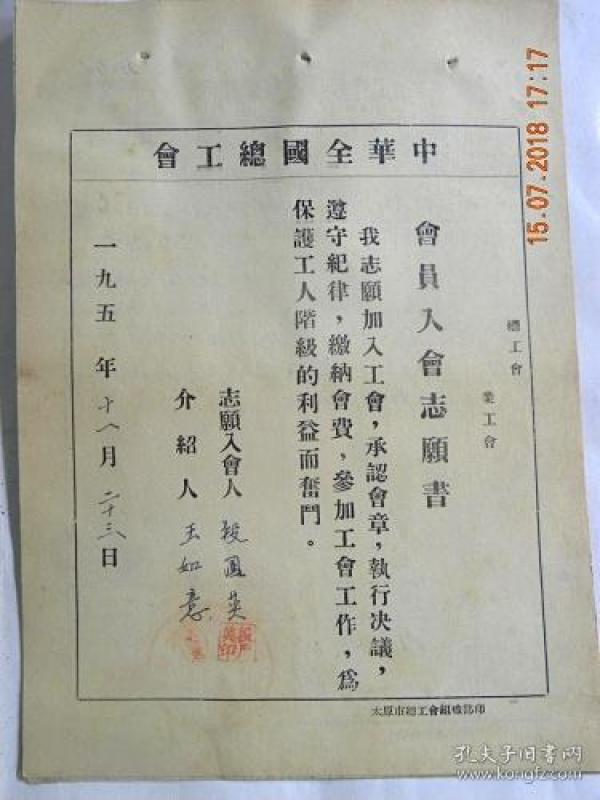 中華全國總工會
總工會
業工會
會員入會志願書
我志願加入工會，承認會章，執行決議，
遵守紀律，繳納會費，參加工會工作，為
保護工人階級的利益而奮鬥。
志願入會人 段鳳英
介紹人 王如意
一九五 年 月 二十三日
太原市總工會組織部印
15.07.2018 17:17
孔夫子旧书网
www.kongfz.com